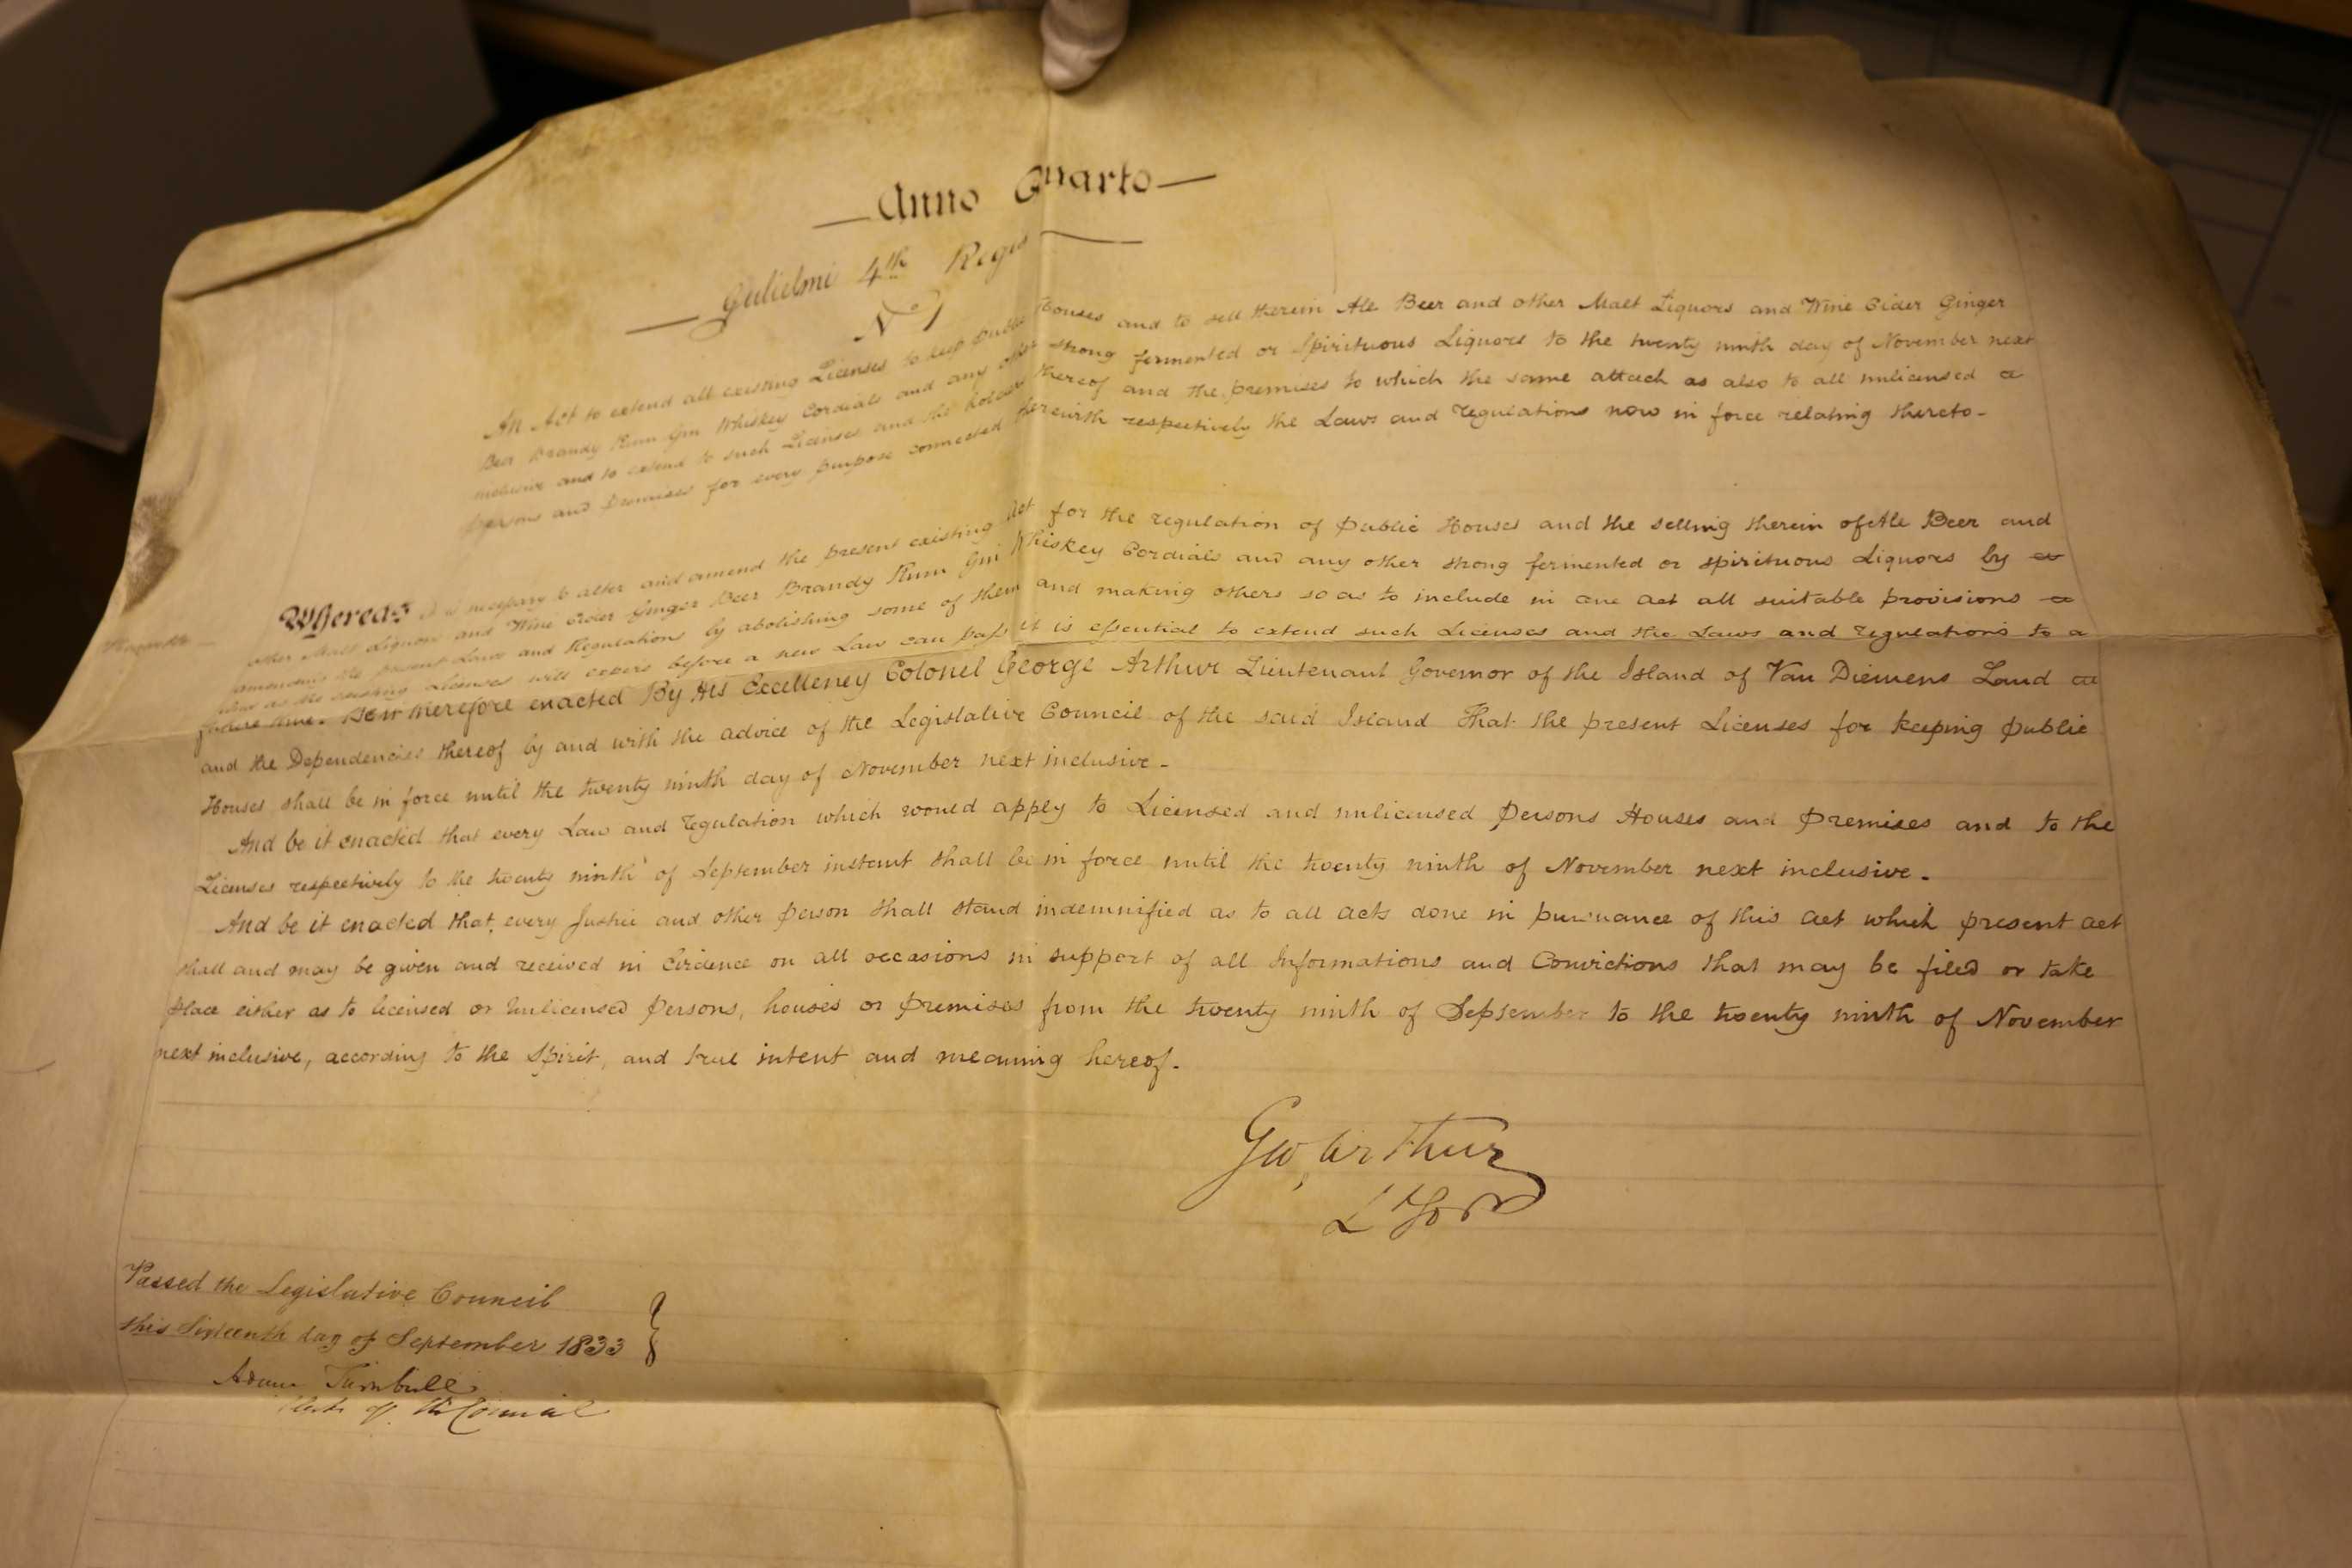 Anno Quarto
Gulielmi 4th Regis
No 1
An Act to extend all existing Licenses to keep Public Houses and to sell therein Ale Beer and other Malt Liquors and Wine Cider Ginger
Beer Brandy Rum Gin Whiskey Cordials and any other strong fermented or Spirituous Liquors to the twenty ninth day of November next
inclusive and to extend to such Licenses and the holders thereof and the premises to which the same attach as also to all unlicensed
persons and Premises for every purpose connected therewith respectively the Laws and regulations now in force relating thereto
Whereas it is necessary to alter and amend the present existing Act for the regulation of Public Houses and the selling therein of Ale Beer and
other Malt Liquors and Wine Cider Ginger Beer Brandy Rum Gin Whiskey Cordials and any other strong fermented or spirituous Liquors by
amending the present Laws and Regulations by abolishing some of them and making others so as to include in one act all suitable provisions
as the existing Licenses will expire before a new Law can pass it is essential to extend such Licenses and the Laws and regulations to a
future time. Be it therefore enacted By His Excellency Colonel George Arthur Lieutenant Governor of the Island of Van Diemens Land
and the Dependencies thereof by and with the advice of the Legislative Council of the said Island That the present Licenses for keeping public
Houses shall be in force until the twenty ninth day of November next inclusive -
And be it enacted that every Law and regulation which would apply to Licensed and unlicensed Persons Houses and Premises and to the
Licenses respectively to the twenty ninth of September instant shall be in force until the twenty ninth of November next inclusive -
And be it enacted that every Justice and other person shall stand indemnified as to all acts done in pursuance of this act which present act
shall and may be given and received in Evidence on all occasions in support of all Informations and Convictions that may be filed or take
place either as to licensed or Unlicensed Persons, houses or premises from the twenty ninth of September to the twenty ninth of November
next inclusive, according to the Spirit, and true intent and meaning hereof -
Geo, Arthur
Passed the Legislative Council
this Sixteenth day of September 1833
Adam Turnbull
Clerk of the Council